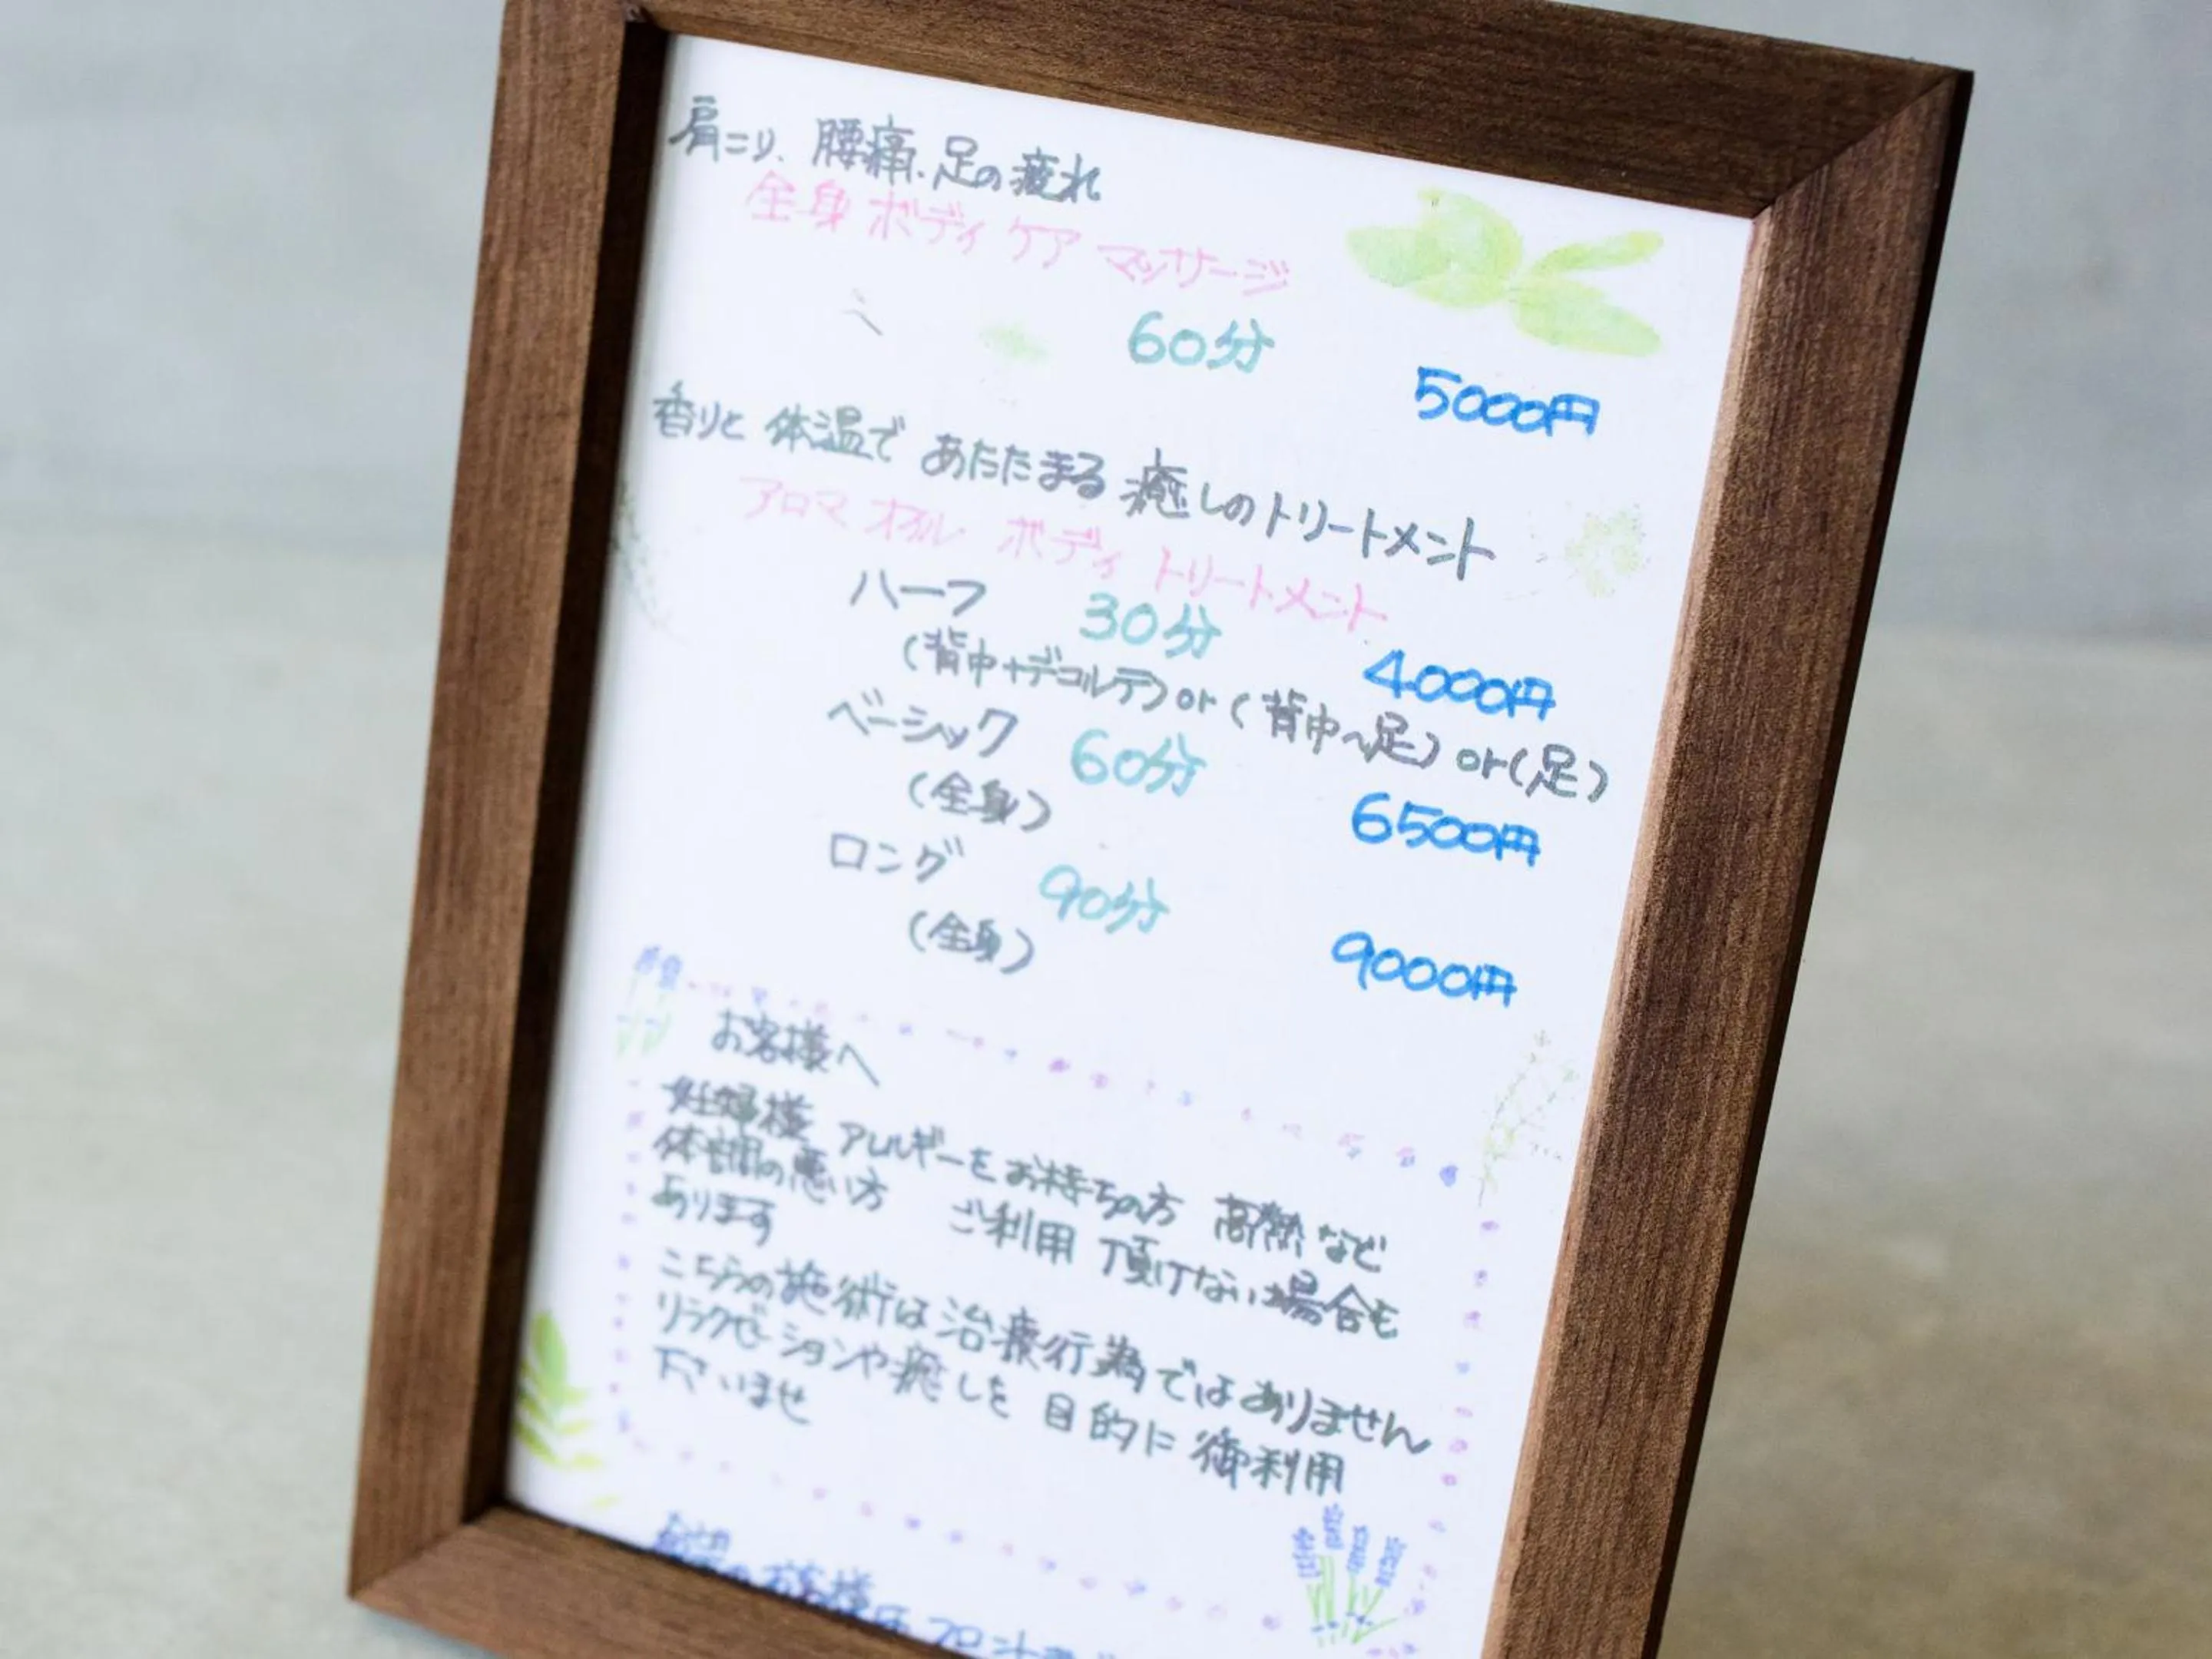 肩こり、腰痛、足の疲れ
全身ボディケアマッサージ
60分 5000円
香りと体温であたたまる癒しのトリートメント
アロマオイル ボディトリートメント
ハーフ 30分 4000円
(背中+デコルテ)or(背中~足)or(足)
ベーシック 60分 6500円
(全身)
ロング 90分 9000円
(全身)
お客様へ
妊婦様 アレルギーをお持ちの方 高熱など
体調の悪い方 ご利用頂けない場合も
あります
こちらの施術は治療行為ではありません
リラクゼーションや癒しを目的に御利用
下さいませ
のお客様